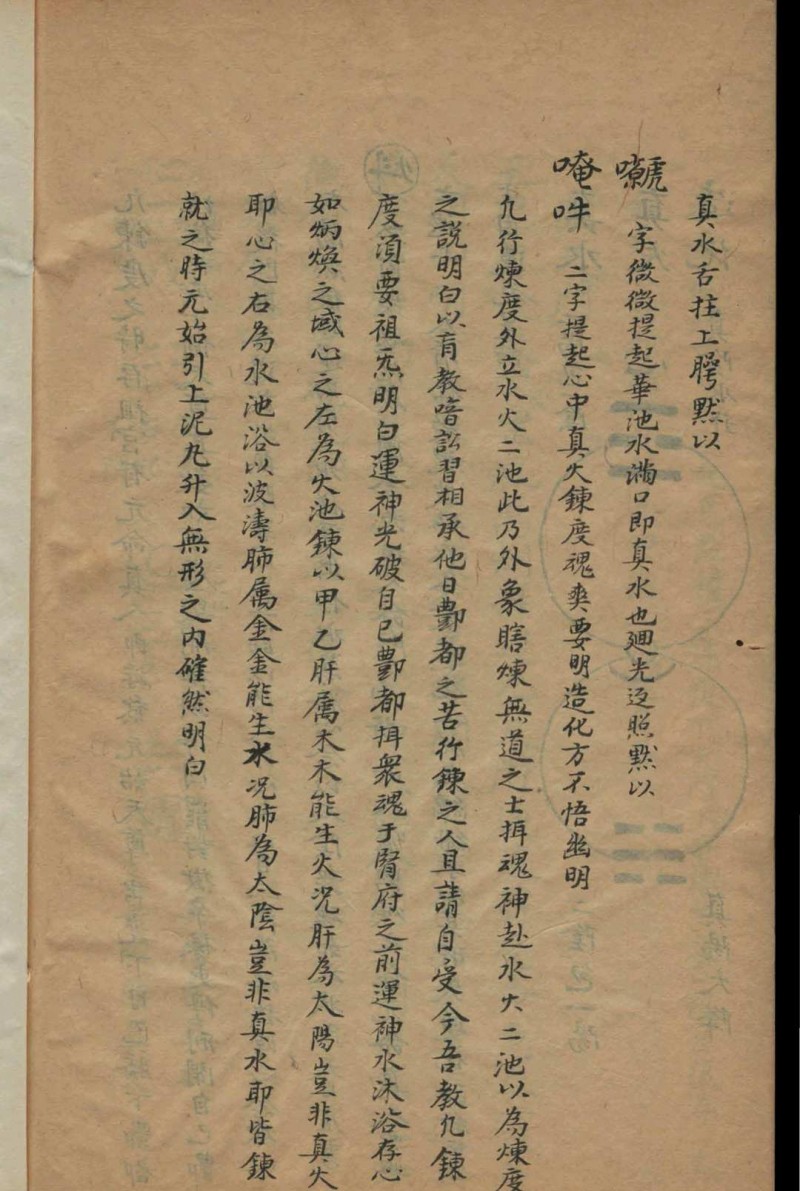 真水舌拄上腭默以
嚎 字微微提起華池水滿口即真水也廻光返照默以
唵吽 二字提起心中真火鍊度魂爽要明造化方不悟幽明
凢行煉度外立水火二池此乃外象瞎煉無道之士揖魂神赴水火二池以為煉度
之説明白以盲教喑訟習相承他日酆都之苦行鍊之人且請自受今吾教凢鍊
度湏要祖炁明白運神光破自己酆都揖衆魂于腎府之前運神水沐浴存心
如炳煥之域心之左為火池鍊以甲乙肝属木木能生火况肝為太陽豈非真火
耶心之右為水池浴以波濤肺属金金能生水况肺為太陰豈非真水耶皆鍊
就之時元始引上泥丸升入無形之内確然明白